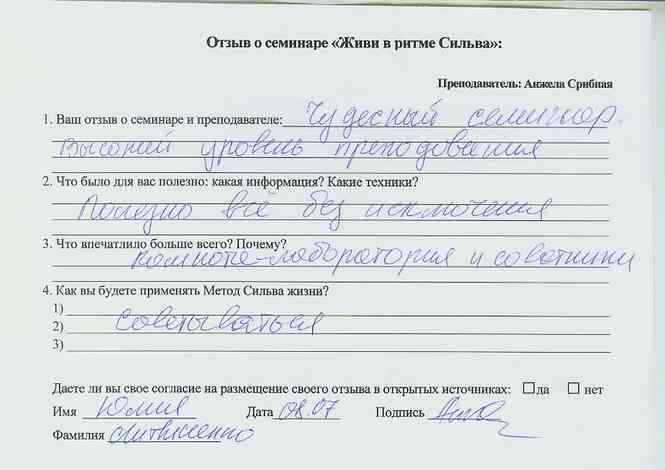 Отзыв о семинаре «Живи в ритме Сильва»:
Преподаватель: Анжела Срибная
1. Ваш отзыв о семинаре и преподавателе: Чудесный семинар.
Высокий уровень преподования
2. Что было для вас полезно: какая информация? Какие техники?
Полезно всё без исключения
3. Что впечатлило больше всего? Почему?
комната-лаборатория и советники
4. Как вы будете применять Метод Сильва жизни?
1)
2) советываться
3)
Даете ли вы свое согласие на размещение своего отзыва в открытых источниках: да нет
Имя Юлия Дата 08.07 Подпись
Фамилия Литвиненко